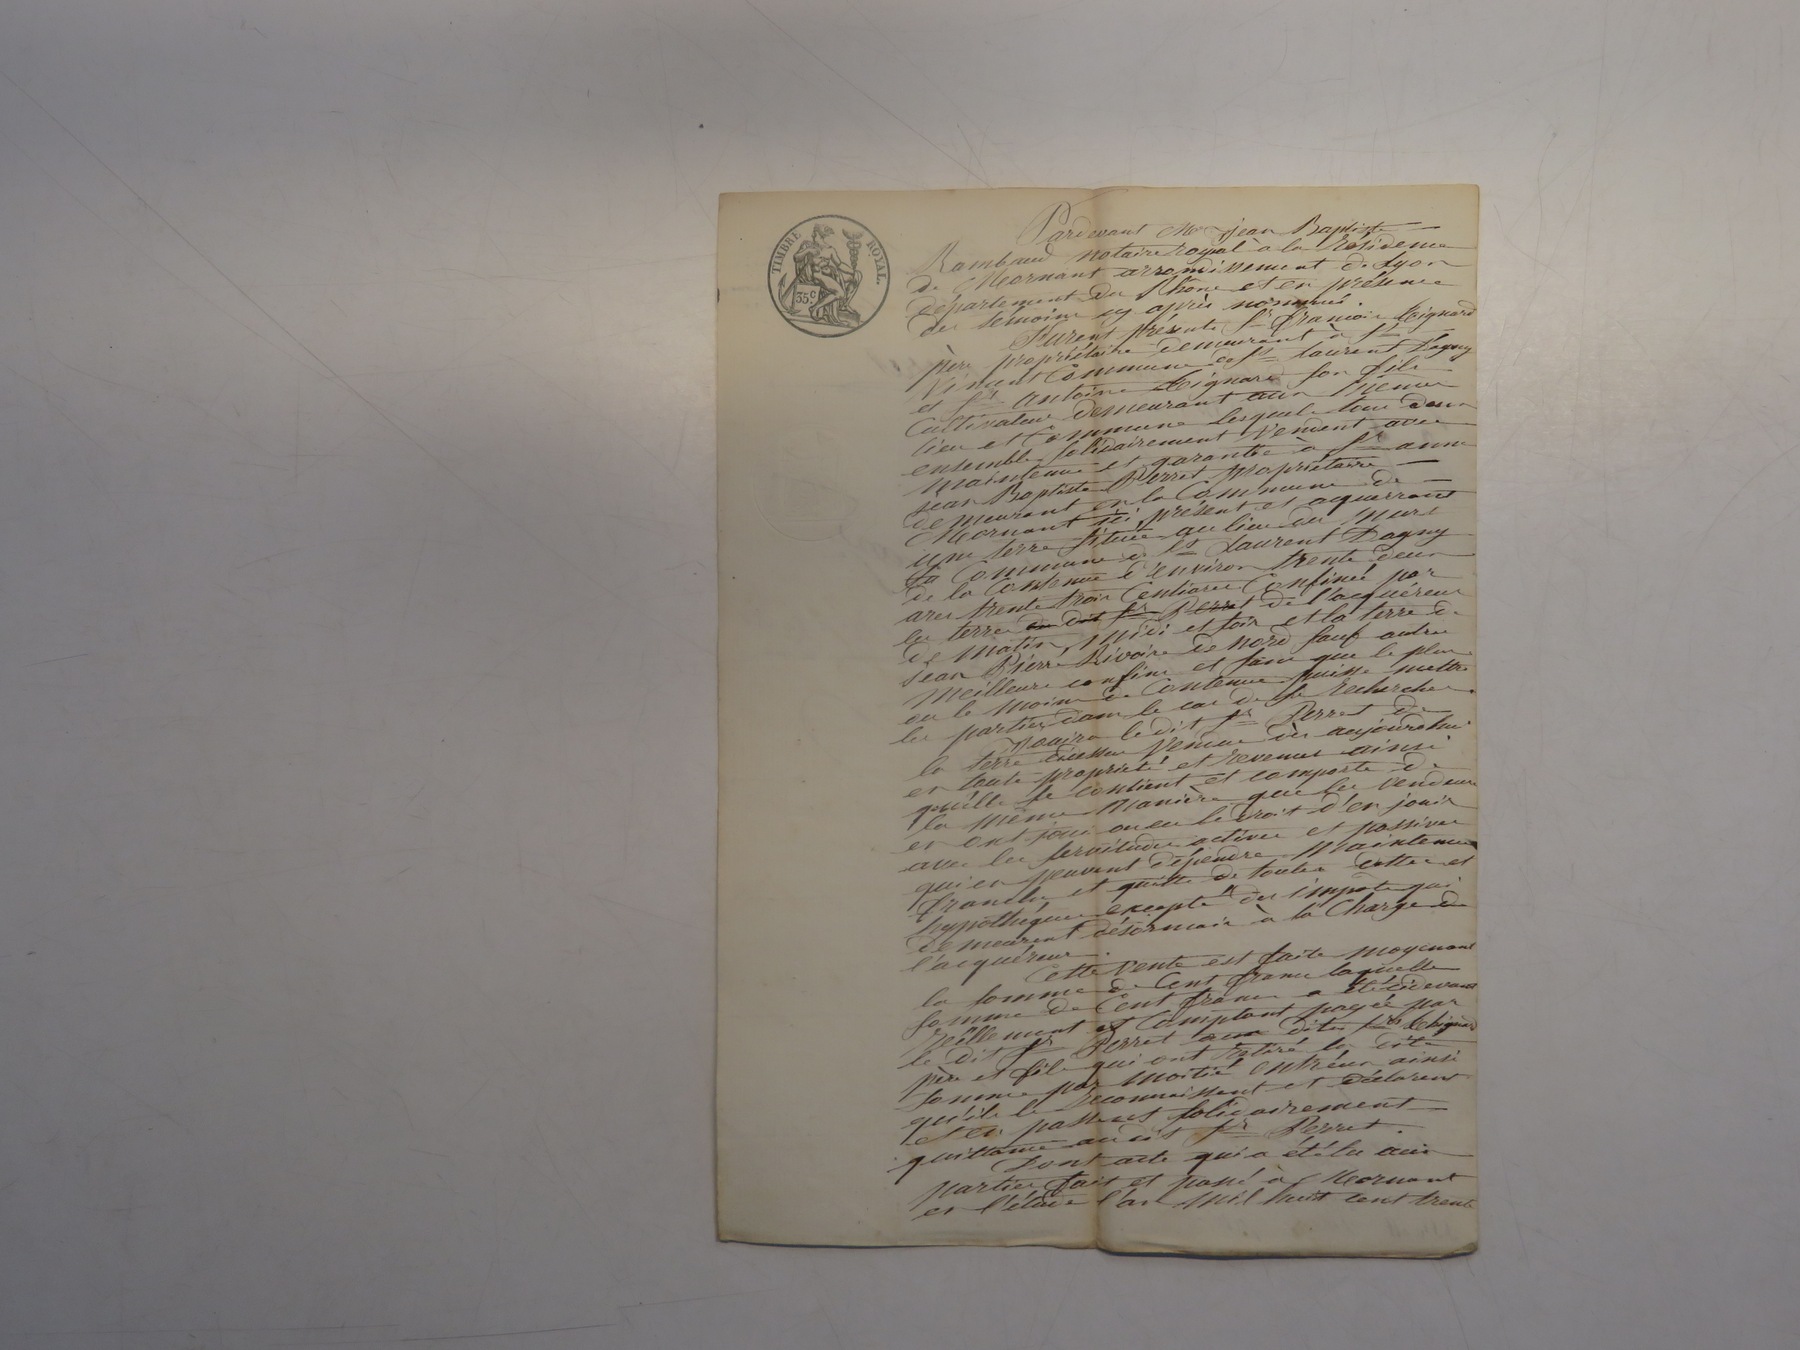 TIMBRE ROYAL.
35c
Pardevant Me jean Baptiste
Rambaud notaire royal à la résidence
de Mornant arrondissement de Lyon
département du Rhône et en présence
des témoins cy après nommés.
Furent présents Sr françois
père propriétaire demeurant à St
Vincent Commune de St laurent Dagny
et Sr antoine son fils
Cultivateur demeurant aux mêmes
lieu et Commune lesquels tous deux
ensemble solidairement vendent avec
maintenue et garantie à Sr anne
jean Baptiste Perret propriétaire
demeurant en la Commune de
Mornant ici présent et acquerrant
une terre située au lieu du
St Laurent Dagny
de la Contenue d'environ trente deux
ares trente trois Centiares Confinée par
la terre du dit Sr Perret de l'acquéreur
de matin, midi et soir et la terre de
jean Pierre Rivoire de nord sauf autres
meilleurs confins et sans que le plus
ou le moins de Contenue puisse mettre
les parties dans le cas de se rechercher.
Jouira le dit Sr Perret de
la terre vendue dès aujourdhui
en toute propriété et revenus ainsi
qu'elle se contient et comporte de
la même manière que les vendeurs
en ont joui ou eu le droit d'en jouir
avec les servitudes actives et passives
qui en peuvent dépendre maintenue
franche et quitte de toutes dettes et
hypothèques excepté des impots qui
demeurent désormais à la Charge de
l'acquéreur.
Cette vente est faite moyenant
la somme de Cent francs laquelle
somme de Cent francs a été cidevant
réellement et Comptant payée par
le dit Sr Perret aux dits Srs
père et fils qui ont retiré la dite
somme par moitié entr'eux ainsi
qu'ils le reconnaissent et déclarent
et en passent solidairement
quittance au dit Sr Perret.
Dont acte qui a été lu aux
parties fait et passé à Mornant
en l'étude l'an mil huit cent trente